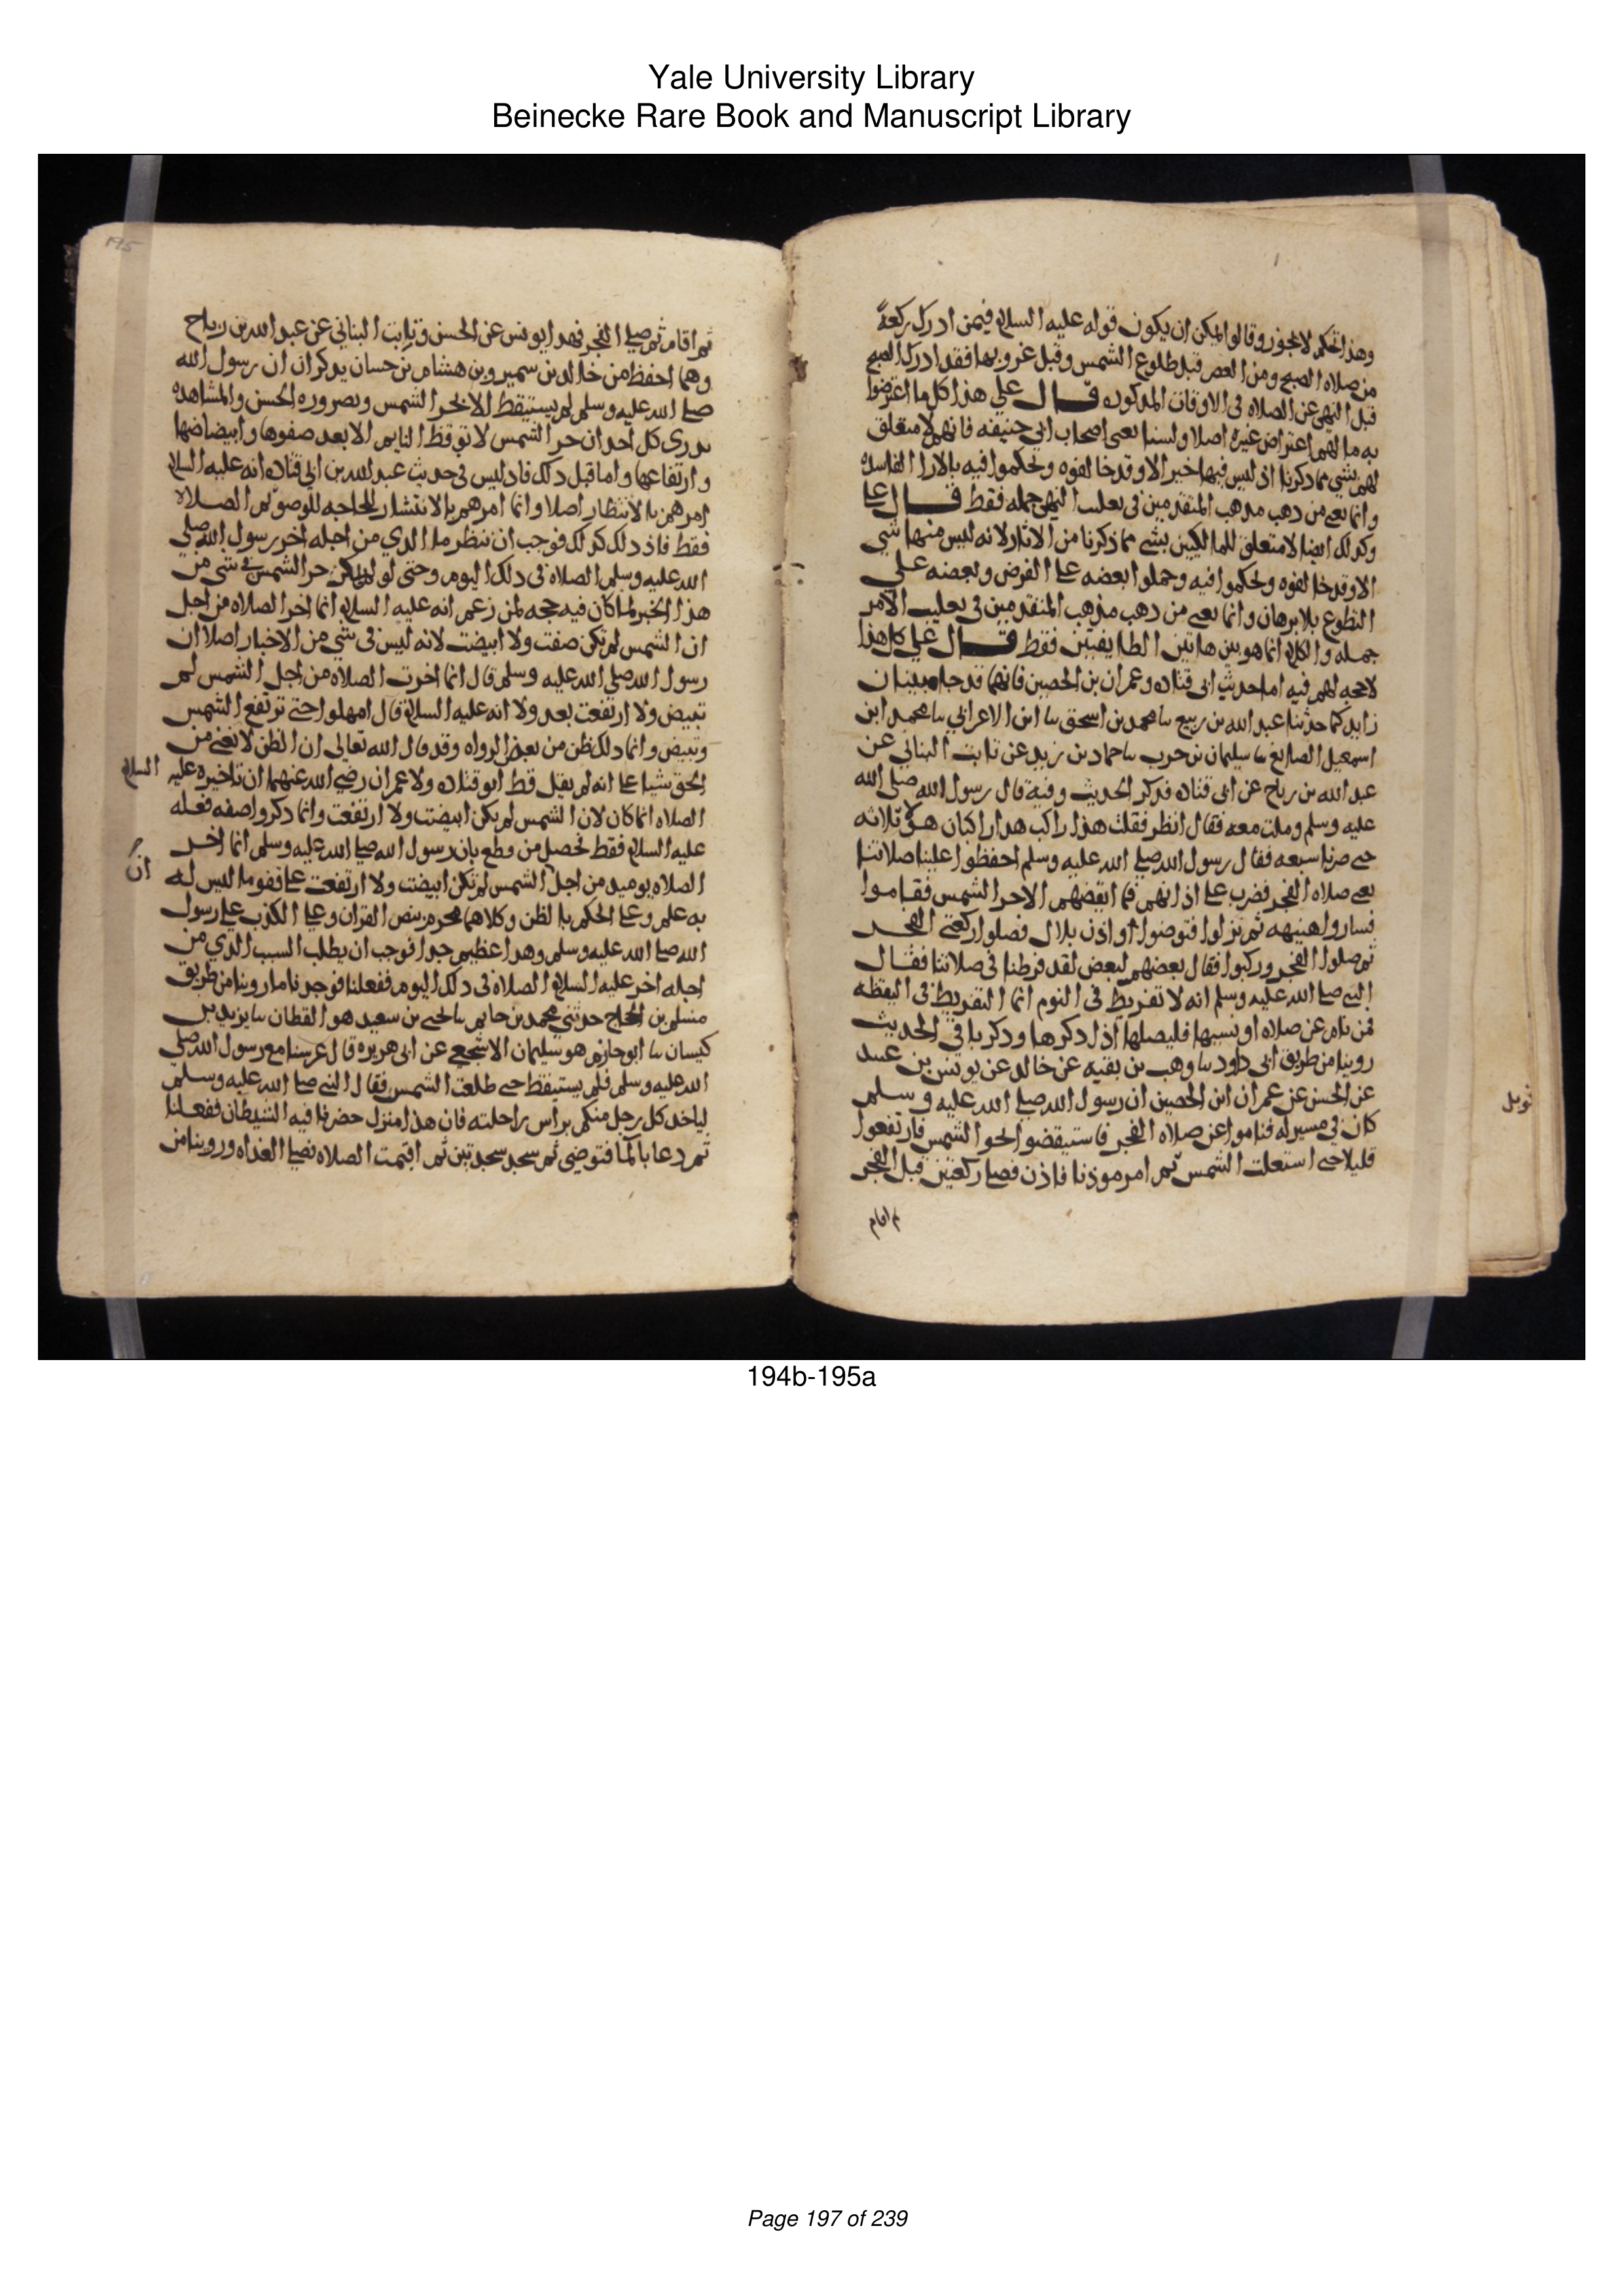 Yale University Library
Beinecke Rare Book and Manuscript Library
وهذا تحكم لا يجوز وقالوا يمكن ان يكون قوله عليه السلام فيمن ادرك ركعة
من صلاه الصبح ومن العصر قبل طلوع الشمس وقبل غروبها فقد ادرك الصبح
قبل النهي عن الصلاه في الاوقات المذكوره قال علي هذا كل ما اعترضوا
به ما لهم اعتراض غيره اصلا ولسنا نعني اصحاب ابي حنيفه فانهم لا متعلق
لهم بشي مما ذكرنا اذ ليس فيها خبر الا وقد خالفوه وتحكموا فيه بالارا الفاسده
وانما نعني من ذهب مذهب المتقدمين في تغليب النهي جمله فقط قال علي
وكذلك ايضا لا متعلق للمالكيين بشي مما ذكرنا من الاثار لانه ليس منها شي
الا وقد خالفوه وتحكموا فيه وحملوا بعضه على الفرض وبعضه على
التطوع بلا برهان وانما نعني من ذهب مذهب المتقدمين في تغليب الامر
جمله والكلام انما هو بين هاتين الطايفتين فقط قال علي كل هذا
لا حجه لهم فيه اما حديث ابي قتاده وعمران بن الحصين فانهما قد جا مبينان
زايد كما حدثنا عبد الله بن ربيع سا محمد بن اسحق سا ابن الاعرابي سا محمد ابن
اسمعيل الصايغ سا سليمان بن حرب سا حماد بن زيد عن ثابت البناني عن
عبد الله بن رباح عن ابي قتاده فذكر الحديث وفيه قال رسول الله صلى الله
عليه وسلم وملت معه فقال انظر فقلت هذا راكب هذا راكبان هولا ثلاثه
حتى صرنا سبعه فقال رسول الله صلى الله عليه وسلم احفظوا علينا صلاتنا
يعني صلاه الفجر فضرب على اذانهم فما ايقضهم الا حر الشمس فقاموا
فساروا هنيهه ثم نزلوا فتوضوا واذن بلال فصلوا ركعتي الفجر
ثم صلوا الفجر وركبوا فقال بعضهم لبعض لقد فرطنا في صلاتنا فقال
النبي صلى الله عليه وسلم انه لا تفريط في النوم انما التفريط في اليقظه
فمن نام عن صلاه او نسيها فليصلها اذا ذكرها وذكر باقي الحديث
روينا من طريق ابي داود سا وهب بن بقيه عن خالد عن يونس بن عبيد
عن الحسن عن عمران ابن الحصين ان رسول الله صلى الله عليه وسلم
كان في مسير له فناموا عن صلاه الفجر فاستيقضوا لحر الشمس فارتفعوا
قليلا حتى استعلت الشمس ثم امر موذنا فاذن فصلى ركعتين قبل الفجر
ثم اقام
قوبل
195
ثم اقام ثم صلى الفجر فهذا يونس عن الحسن وثابت البناني عن عبد الله بن رباح
وهما احفظ من خالد بن سمير وبن هشام بن حسان يذكران ان رسول الله
صلى الله عليه وسلم لم يستيقظ الا بحر الشمس وبضروره الحس والمشاهده
يدري كل احد ان حر الشمس لا توقظ النايم الا بعد صفوها وابيضاضها
وارتفاعها واما قبل ذلك فلا وليس في حديث عبد الله بن ابي قتاده انه عليه السلام
امرهم بالانتظار اصلا وانما امرهم بالانتشار للحاجه للوضو ثم الصلاه
فقط فاذ ذلك كذلك فوجب ان ننظر ما الذي من اجله اخر رسول الله صلى
الله عليه وسلم الصلاه في ذلك اليوم وحتى لو لم يكن حر الشمس في شي من
هذا الخبر لما كان فيه حجه لمن زعم انه عليه السلام انما اخر الصلاه من اجل
ان الشمس لم تكن صفت ولا ابيضت لانه ليس في شي من الاخبار اصلا ان
رسول الله صلى الله عليه وسلم قال انما اخرت الصلاه من اجل الشمس لم
تبيض ولا ارتفعت بعد ولا انه عليه السلام قال امهلوا حتى ترتفع الشمس
وتبيض وانما ذلك ظن من بعض الرواه وقد قال الله تعالى ان الظن لا يغني من
الحق شيا على انه لم يقل قط ابو قتاده ولا عمران رضي الله عنهما ان تاخيره عليه السلام
الصلاه انما كان لان الشمس لم يكن ابيضت ولا ارتفعت وانما ذكروا صفه فعله
عليه السلام فقط فحصل من قطع بان رسول الله صلى الله عليه وسلم انما اخر
ان
الصلاه يوميد من اجل الشمس لم تكن ابيضت ولا ارتفعت على قفو ما ليس له
به علم وعلى الحكم بالظن وكلاهما محرم بنص القران وعلى الكذب على رسول
الله صلى الله عليه وسلم وهذا عظيم جدا فوجب ان يطلب السبب الذي من
اجله اخر عليه السلام الصلاه في ذلك اليوم ففعلنا فوجدنا ما روينا من طريق
مسلم بن الحجاج حدثني محمد بن حاتم سا يحيى بن سعيد هو القطان سا يزيد بن
كيسان سا ابو حازم هو سليمان الاشجعي عن ابي هريره قال عرسنا مع رسول الله صلى
الله عليه وسلم فلم يستيقظ حتى طلعت الشمس فقال النبي صلى الله عليه وسلم
لياخذ كل رجل منكم براس راحلته فان هذا منزل حضرنا فيه الشيطان ففعلنا
ثم دعا بالما فتوضي ثم سجد سجدتين ثم اقيمت الصلاه فصلى الغداه وروينا من
194b-195a
Page 197 of 239